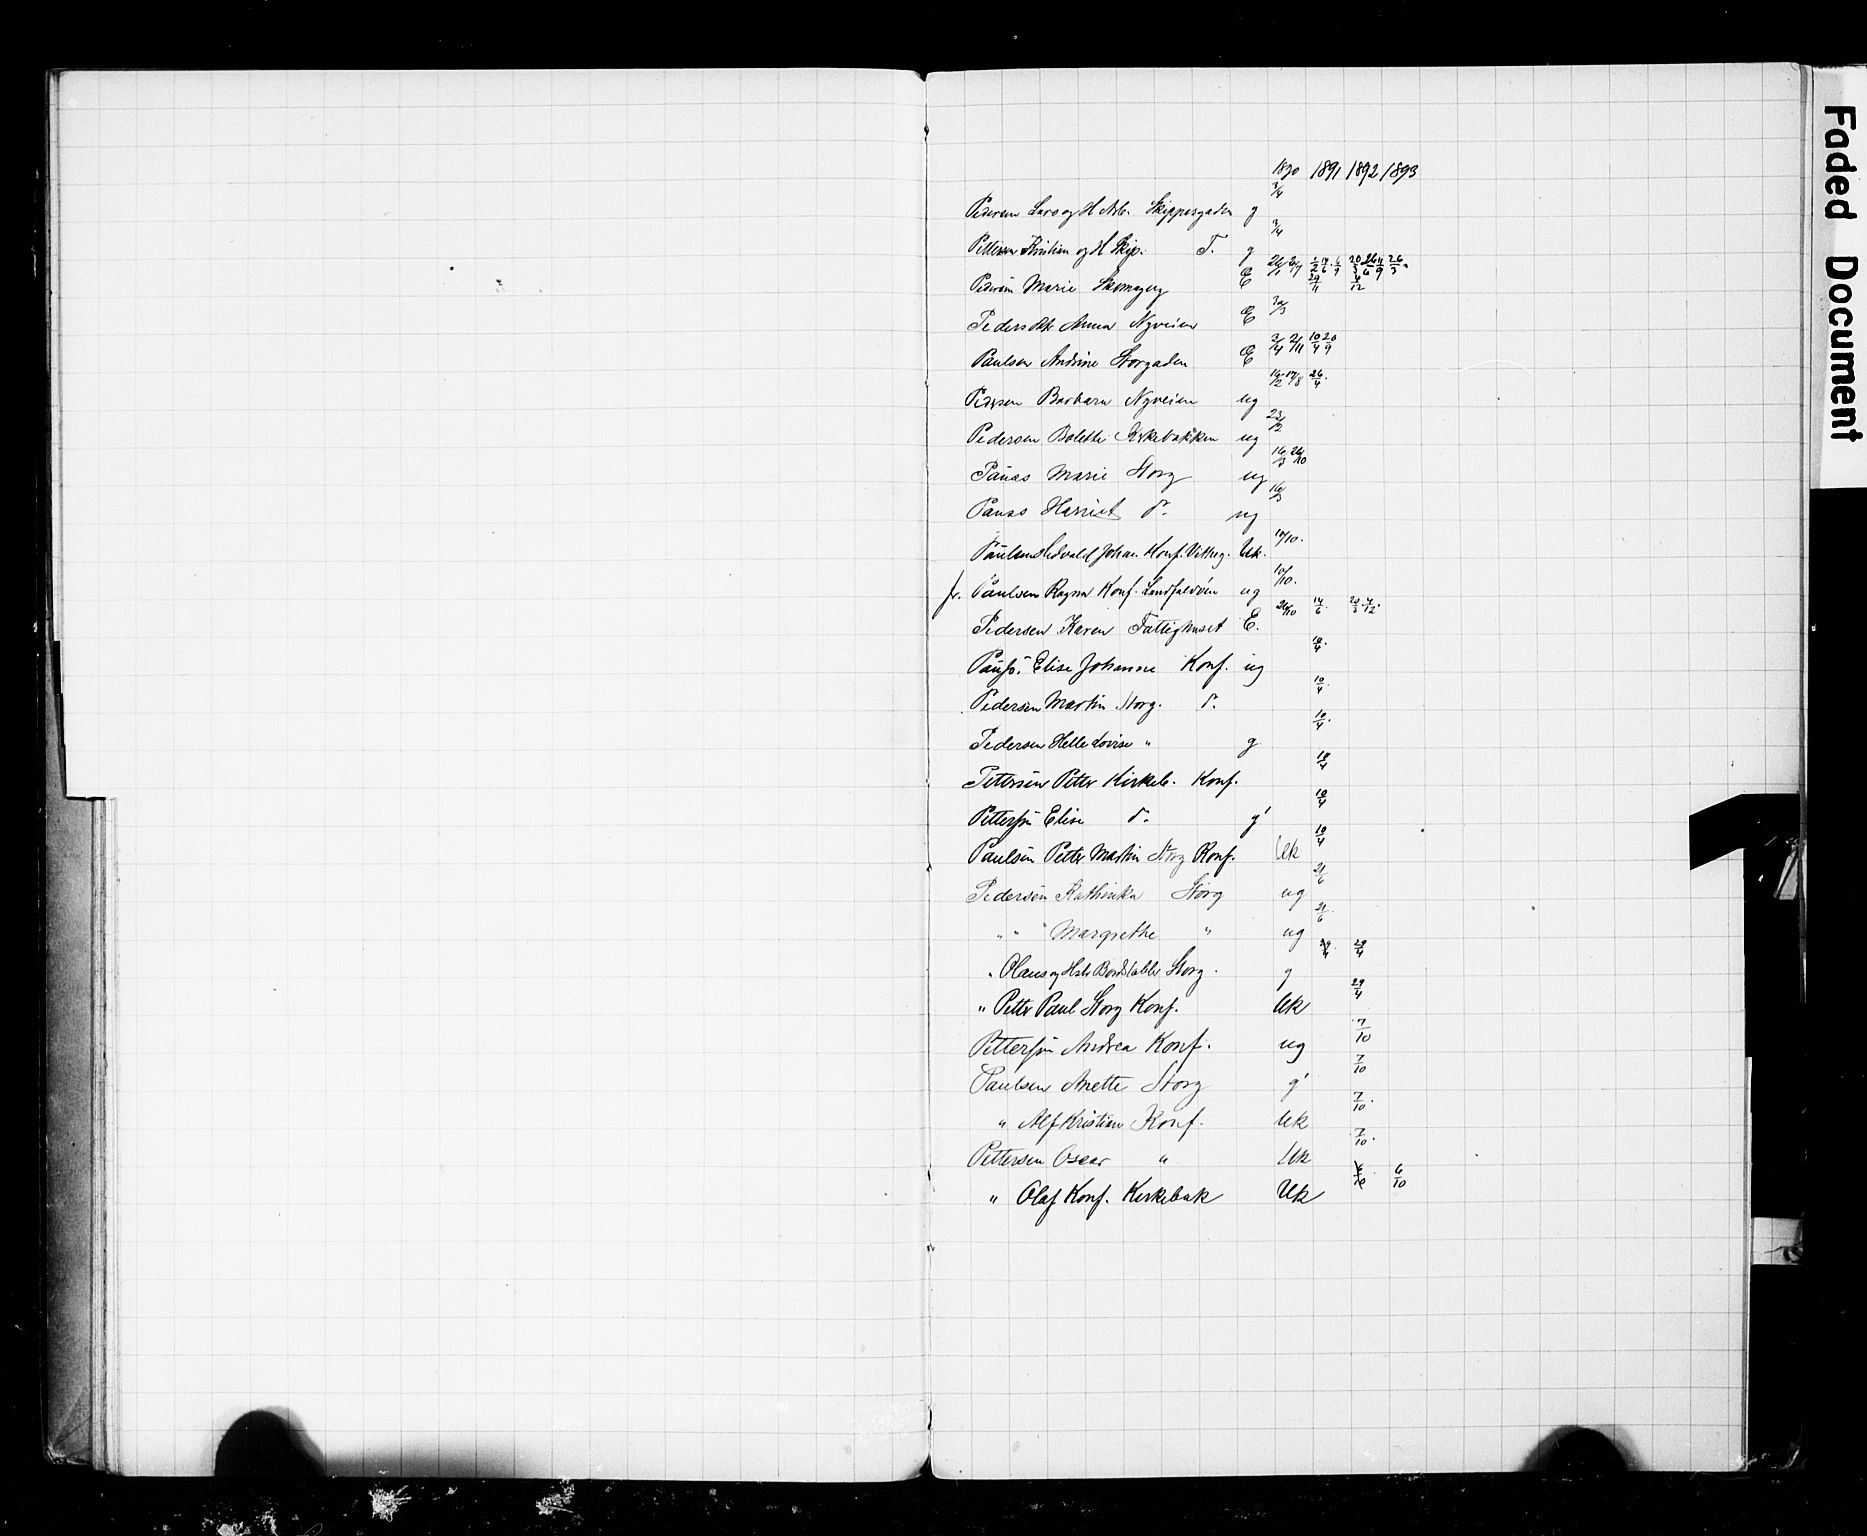 1890 1891 1892 1893
3/4
Pedersen Lars og H Arb. Skippergaden g
3/4
Pettersen Kristian og H Skip. d. g
26/1 2/7 1/2 14/6 6/9 20/3 26/6 11/9 26/3
Pedersen Marie Skomagerg E 29/11 4/12
30/3
Pedersdtr Anna Nyveien E
3/4 2/11 10/4 20/9
Paulsen Andrine Storgaden E
16/2 17/8 26/4
Pedersen Barbara Nyveien ug
23/2
Pedersen Bolette Kirkebakken ug
16/3 26/10
Pauss Marie Storg ug
16/3
Pauss Harriet d. ug
10/10.
Paulsen Edvald Johan Konf. Uk.
10/10.
fr. Paulsen Ragna Konf. Landfaldöen ug
26/10 14/6. 20/3 4/12.
Pedersen Karen Fattighuset E.
10/4.
Pauss. Elise Johanne Konf. ug
10/4.
Pedersen Martin Storg. d.
10/4.
Pedersen Helle Lovise " g
10/4
Pettersen Petter Kirkeb. Konf.
10/4
Petterssen Elise d. g
10/4
Paulsen Petter Martin Storg Konf. Uk
21/6
Pedersen Kathinka Storg ug
21/6.
" " " Margrethe " ug
29/4
" Olaus og Hstr Storg. g
29/4
" Petter Paul Storg Konf. Uk
7/10
Petterssen Andrea Konf. ug
7/10
Paulsen Anette Storg g
7/10.
" Alf Kristian Konf. Uk
7/10.
Pettersen Oscar " Uk
6/10
" Olaf Konf. Kirkebak Uk
Faded Document